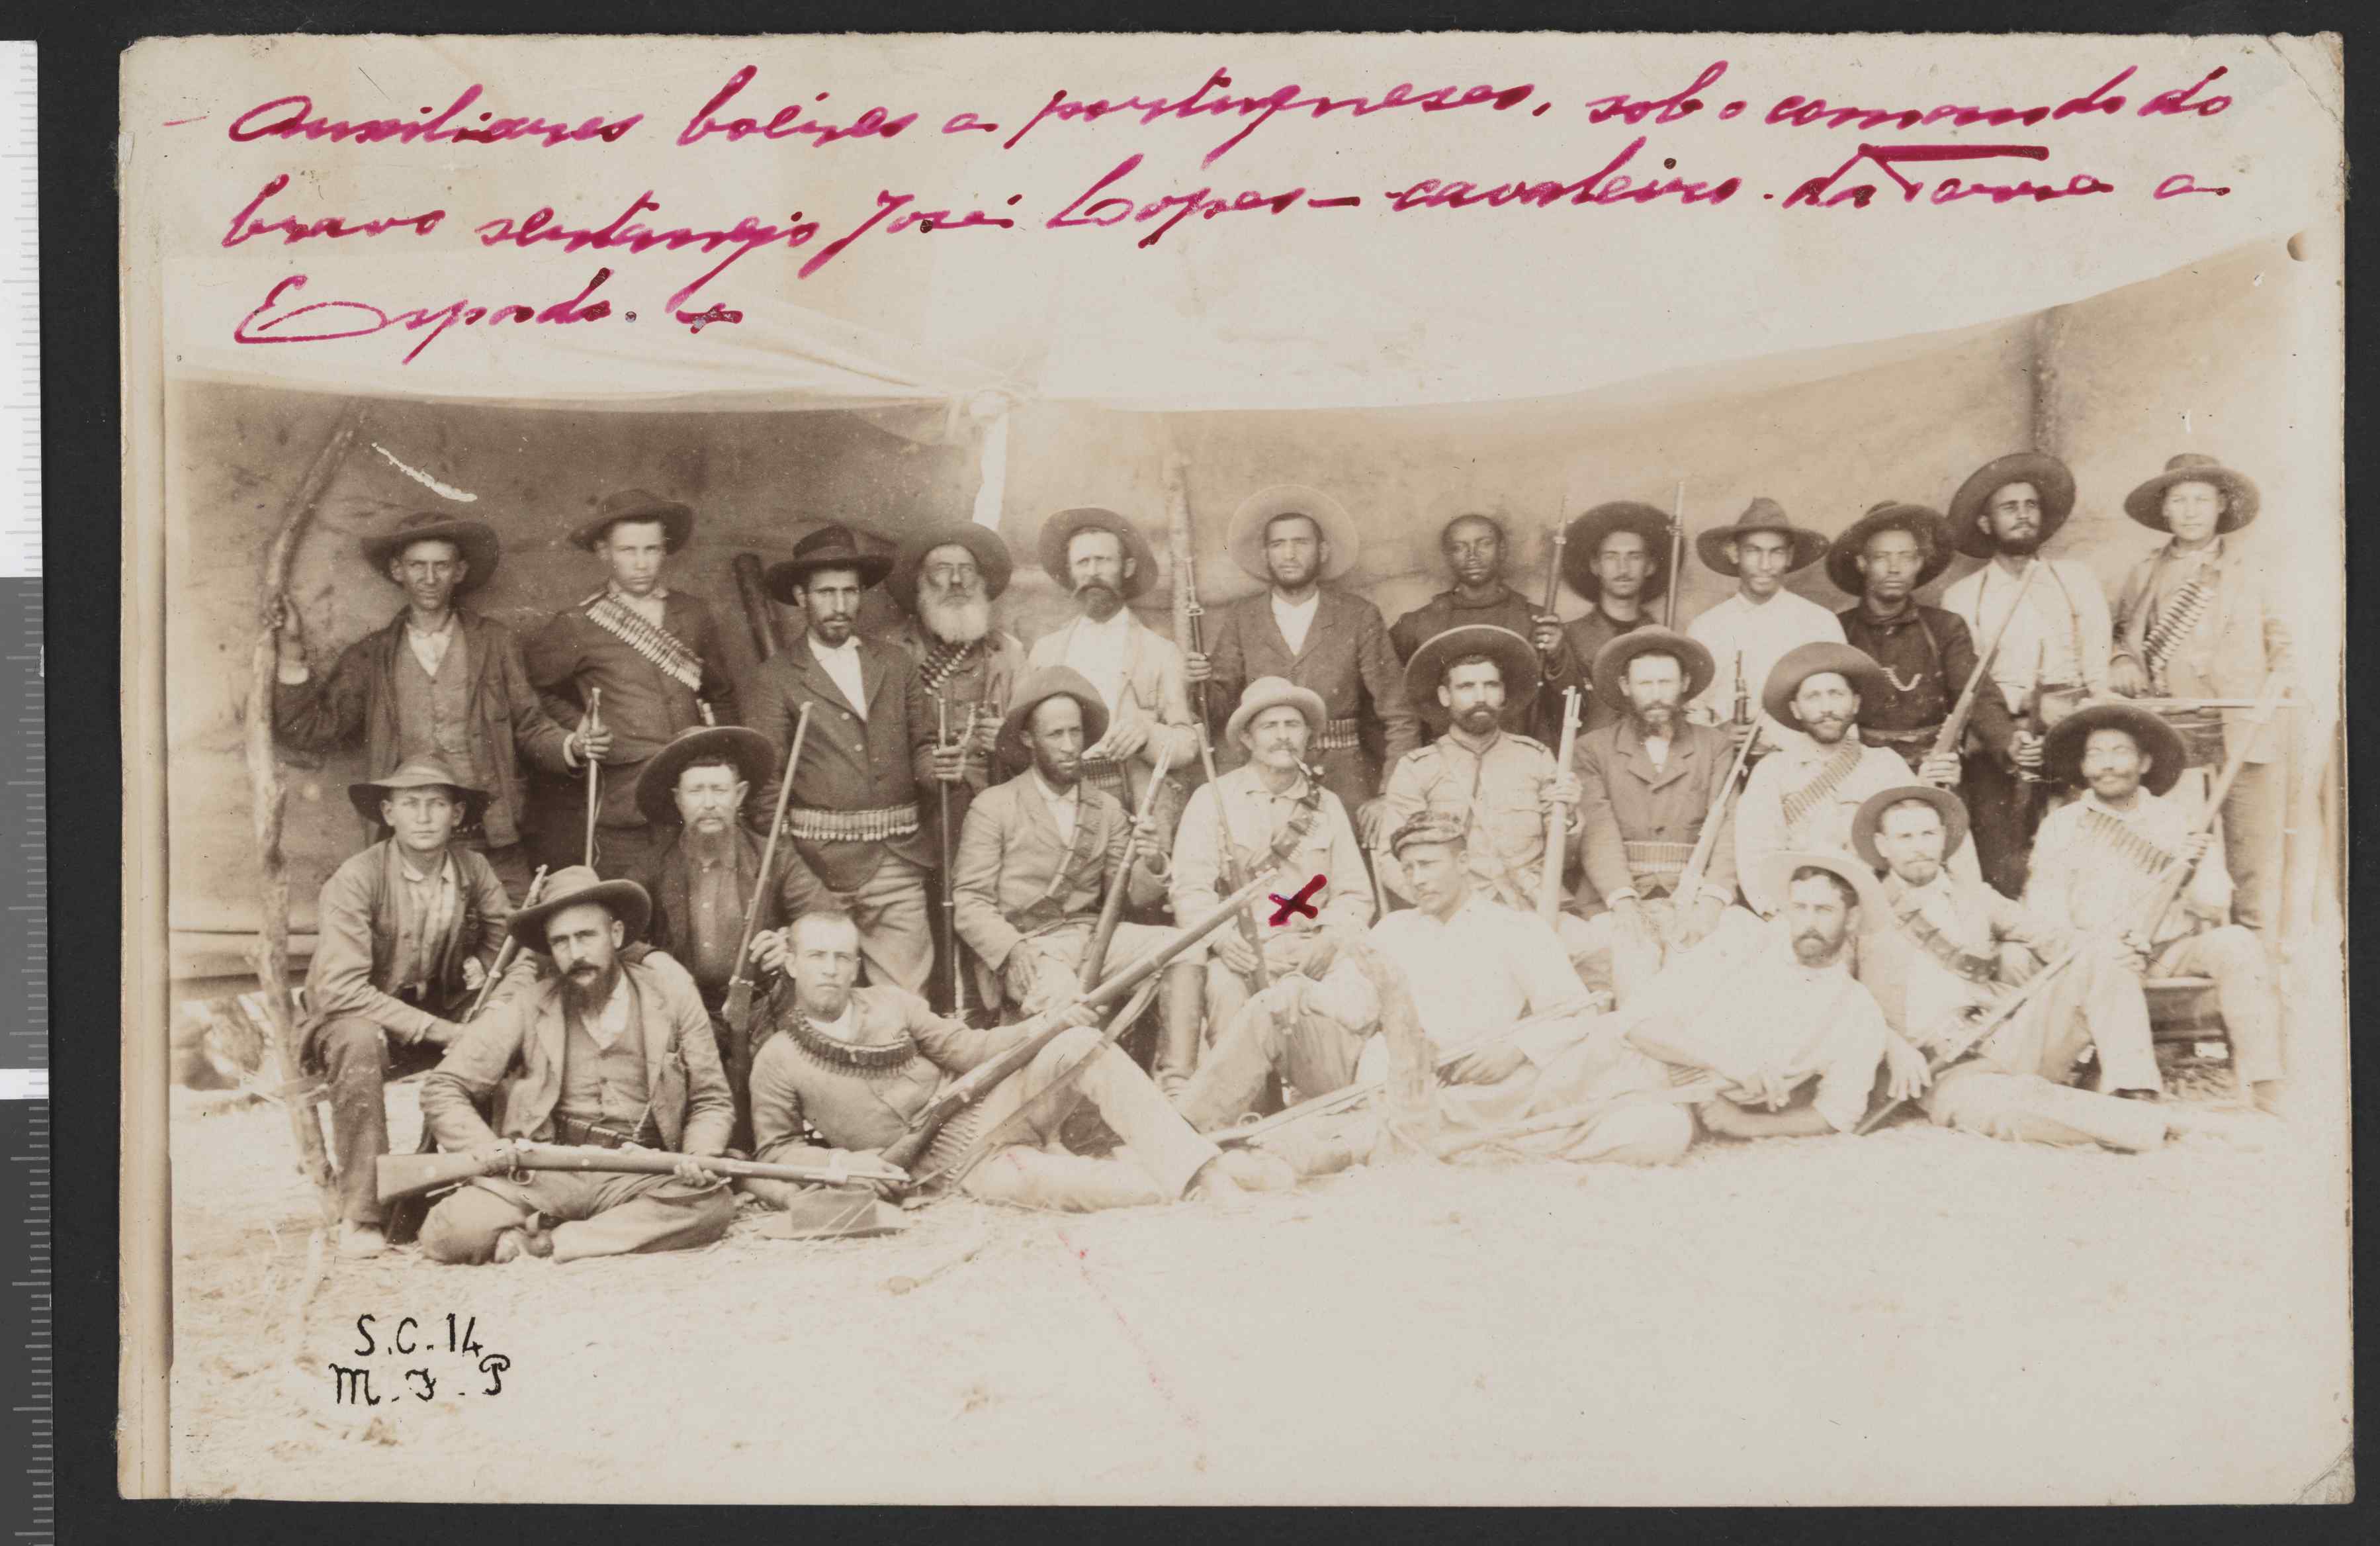 - Auxiliares boéres e portugueses, sob o comando do
bravo sertanejo José Lopes - cavaleiro da Torre e
Espada. +
S.C. 14
M. F. P